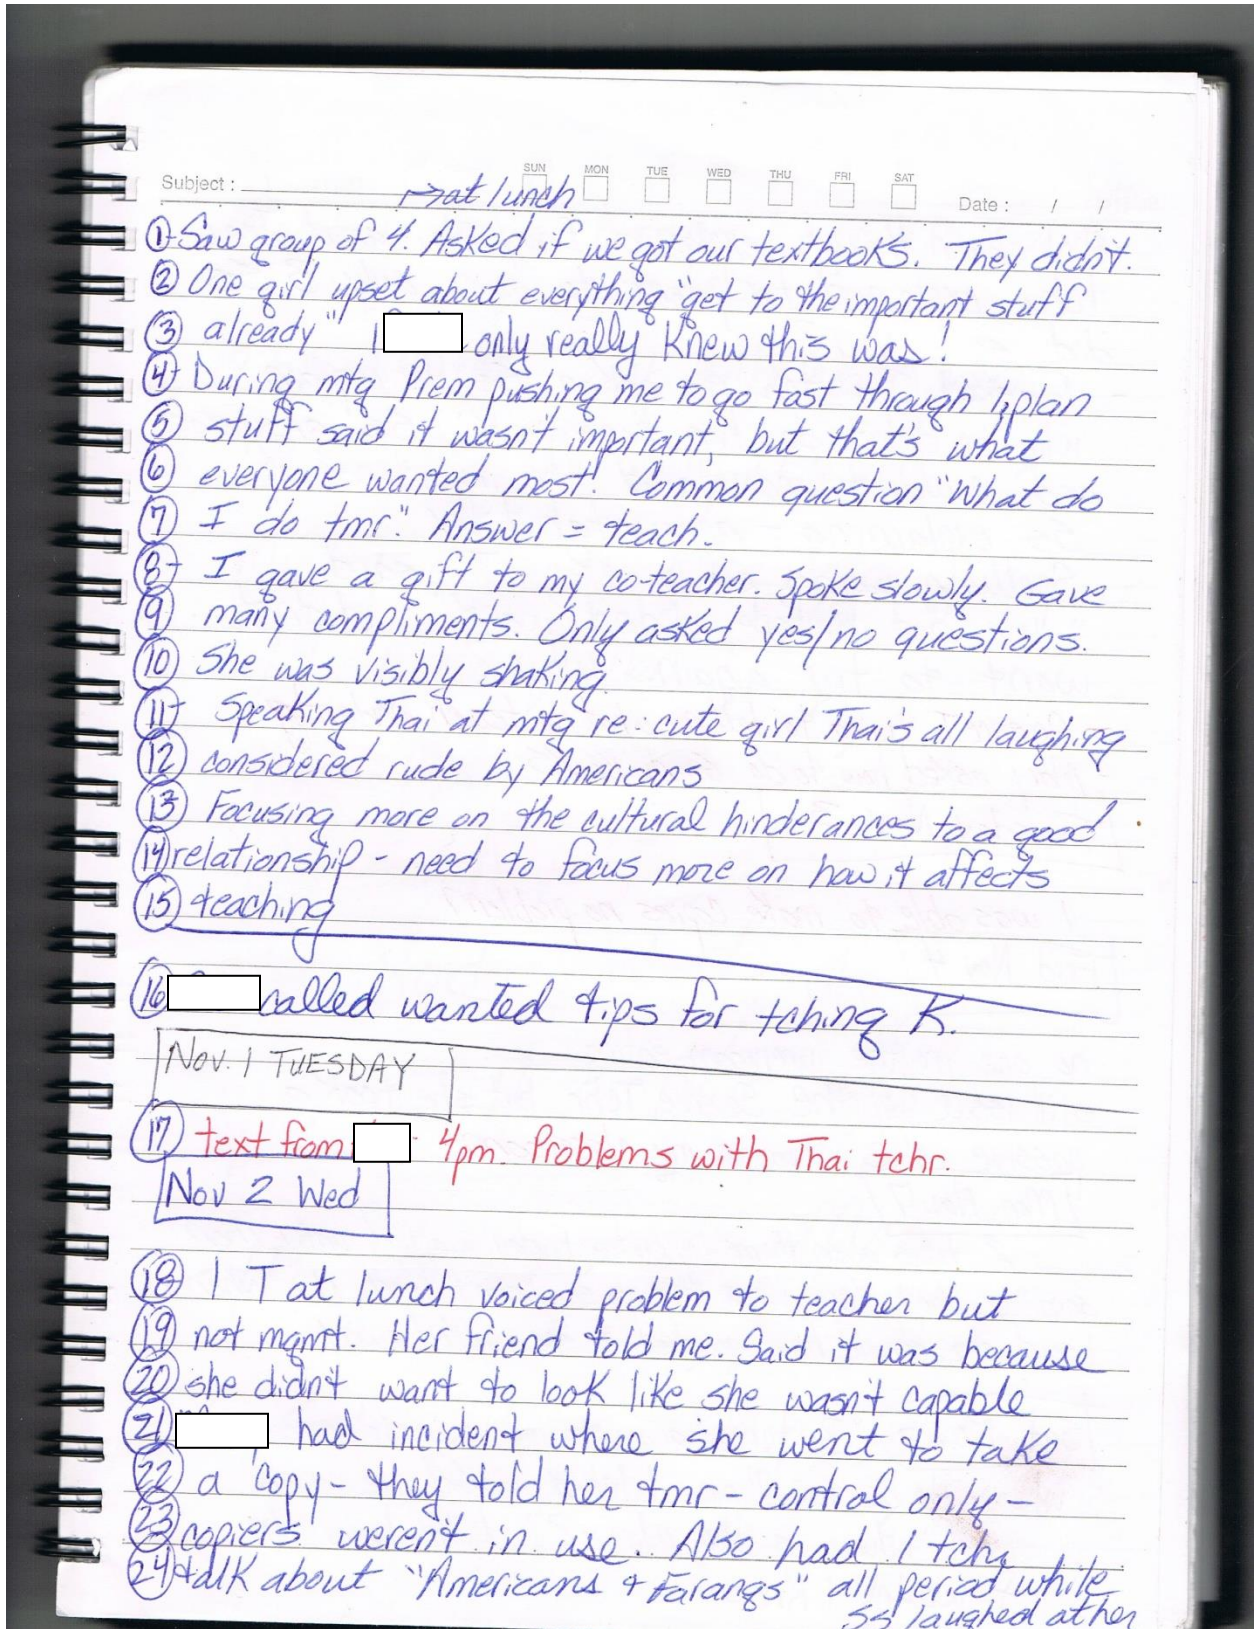 SUN MON TUE WED THU FRI SAT
Subject : →at lunch Date : / /
① Saw group of 4. Asked if we got our textbooks. They didn't.
② One girl upset about everything "get to the important stuff
③ already" only really knew this was!
④ During mtg Prem pushing me to go fast through l.plan
⑤ stuff said it wasn't important, but that's what
⑥ everyone wanted most! Common question "What do
⑦ I do tmr." Answer = teach.
⑧ I gave a gift to my co-teacher. Spoke slowly. Gave
⑨ many compliments. Only asked yes/no questions.
⑩ She was visibly shaking.
⑪ Speaking Thai at mtg re: cute girl Thai's all laughing
⑫ considered rude by Americans
⑬ Focusing more on the cultural hinderances to a good
⑭ relationship - need to focus more on how it affects
⑮ teaching
⑯ called wanted tips for tching K.
Nov. 1 TUESDAY
⑰ text from 4pm. Problems with Thai tchr.
Nov 2 Wed
⑱ 1 T at lunch voiced problem to teacher but
⑲ not mgmt. Her friend told me. Said it was because
⑳ she didn't want to look like she wasn't capable
㉑ had incident where she went to take
㉒ a copy - they told her tmr - control only -
㉓ copiers weren't in use. Also had 1 tchr
㉔ talk about "Americans + Farangs" all period while
Ss laughed at her